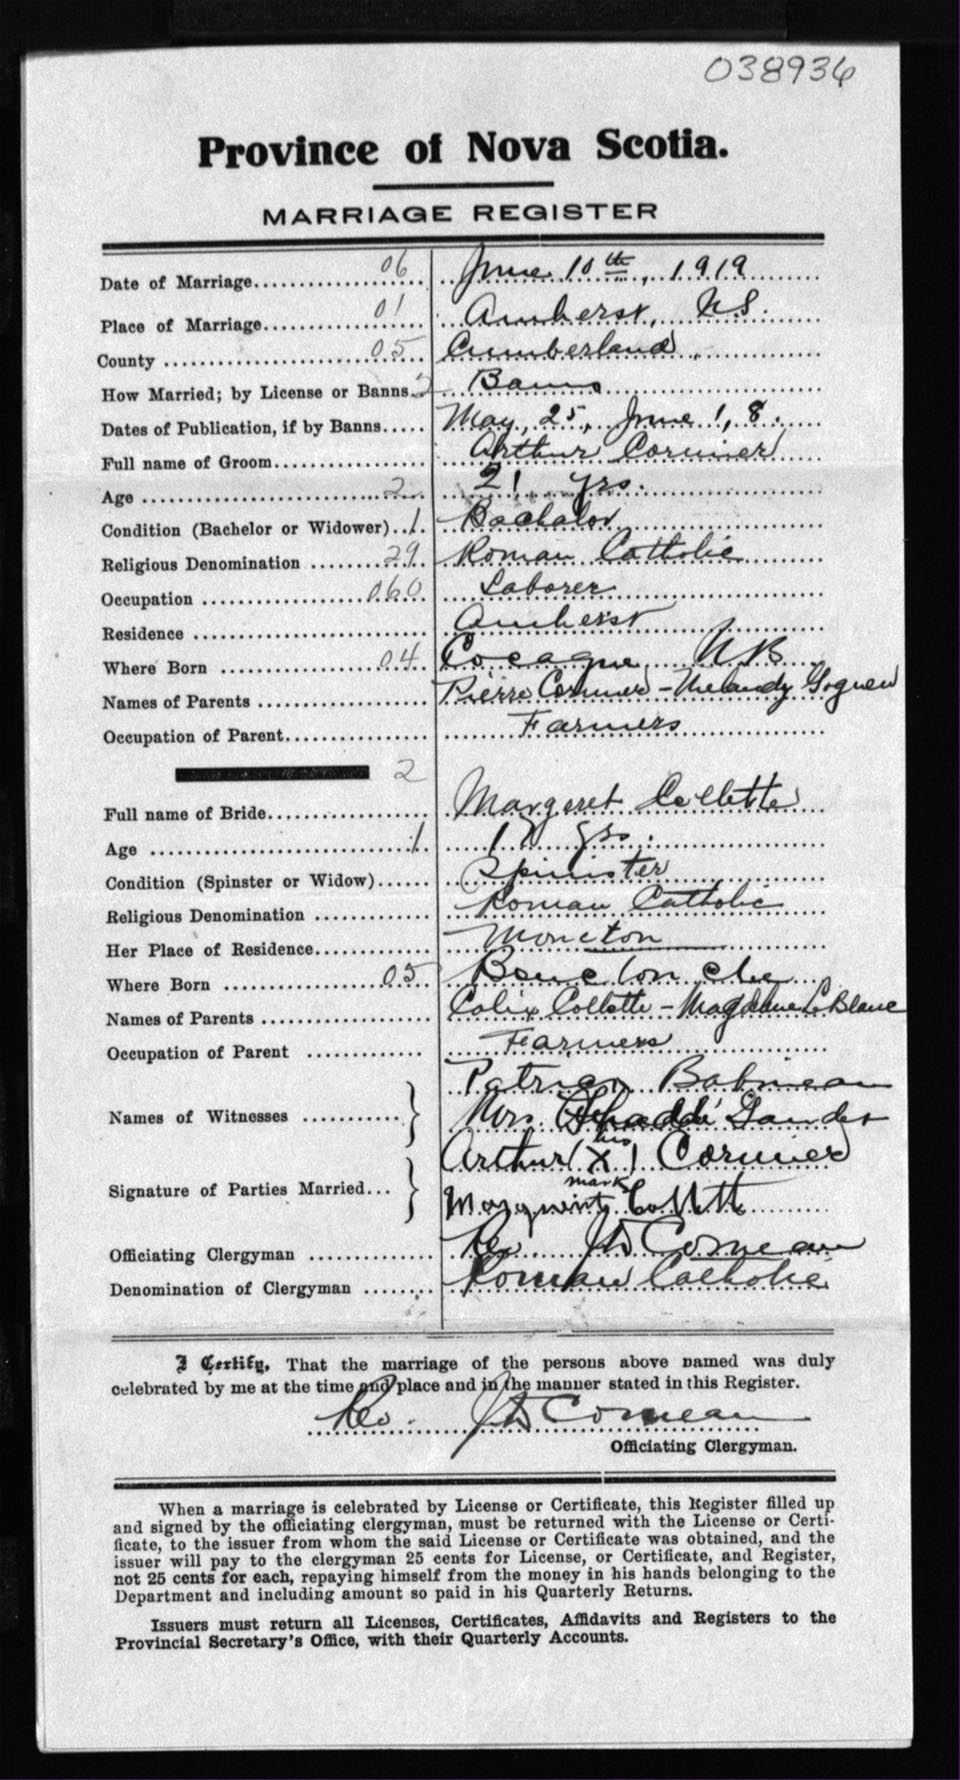 038936
Province of Nova Scotia.
MARRIAGE REGISTER
Date of Marriage 06 June 10th, 1919
Place of Marriage 01 Amherst, NS.
County 05 Cumberland
How Married; by License or Banns 2 Banns
Dates of Publication, if by Banns May, 25, June 1, 8.
Full name of Groom Arthur Cormier
Age 2 21 yrs.
Condition (Bachelor or Widower) 1 Bachelor
Religious Denomination 29 Roman Catholic
Occupation 060 Laborer
Residence Amherst
Where Born 04 Cocagne NB
Names of Parents Pierre Cormier - Goguen
Occupation of Parent Farmers
2
Full name of Bride Margaret Collette
Age 1 17 yrs.
Condition (Spinster or Widow) Spinister
Religious Denomination Roman Catholic
Her Place of Residence Moncton
Where Born 05 Bouctouche
Names of Parents Calix Collette - Magdelene LeBlanc
Occupation of Parent Farmers
Names of Witnesses Patrick Babineau
Mrs. Thaddé Landry
his
Signature of Parties Married Arthur (X) Cormier
mark
Collette
Officiating Clergyman Rev. JD Comeau
Denomination of Clergyman Roman Catholic
I Certify, That the marriage of the persons above named was duly
celebrated by me at the time and place and in the manner stated in this Register.
Rev. JD Comeau
Officiating Clergyman.
When a marriage is celebrated by License or Certificate, this Register filled up
and signed by the officiating clergyman, must be returned with the License or Certi-
ficate, to the issuer from whom the said License or Certificate was obtained, and the
issuer will pay to the clergyman 25 cents for License, or Certificate, and Register,
not 25 cents for each, repaying himself from the money in his hands belonging to the
Department and including amount so paid in his Quarterly Returns.
Issuers must return all Licenses, Certificates, Affidavits and Registers to the
Provincial Secretary's Office, with their Quarterly Accounts.